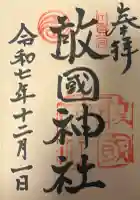 奉拝
敢國神社
令和七年十二月一日